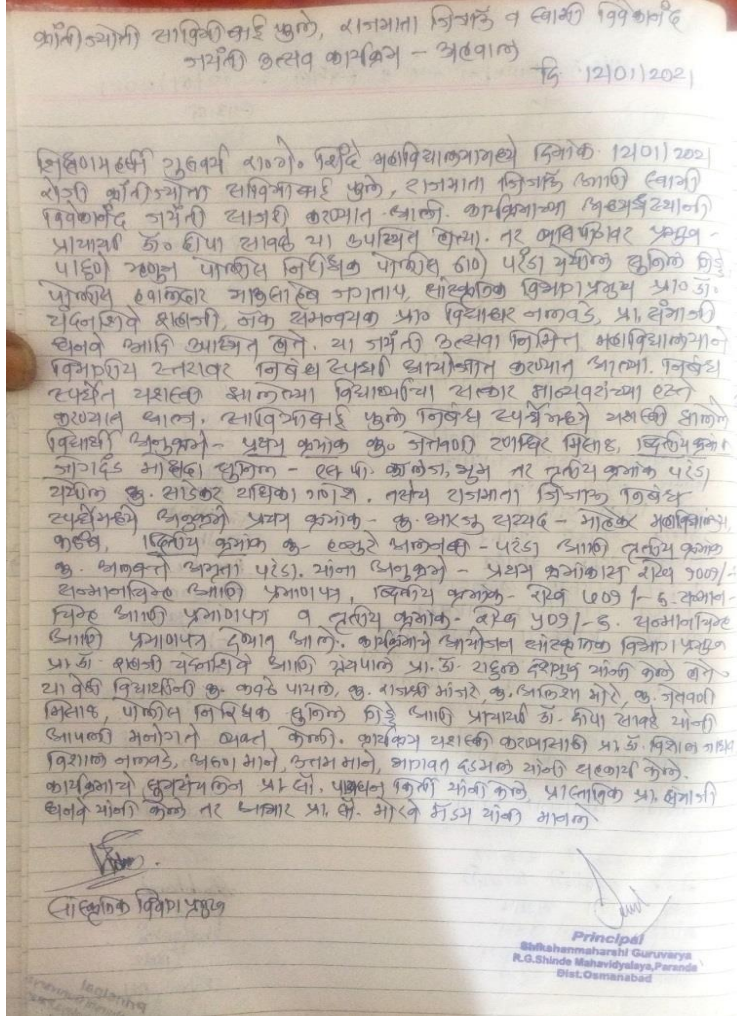 क्रांतीज्योती सावित्रीबाई फुले, राजमाता जिजाऊ व स्वामी विवेकानंद
जयंती उत्सव कार्यक्रम - अहवाल
दि 12/01/2021
शिक्षणमहर्षी गुरुवर्य रा०गे० शिंदे महाविद्यालयामध्ये दिनांक 12/01/2021
रोजी क्रांतीज्योती सावित्रीबाई फुले, राजमाता जिजाऊ आणि स्वामी
विवेकानंद जयंती साजरी करण्यात आली. कार्यक्रमाच्या अध्यक्षस्थानी
प्राचार्या डॉ० दीपा सावळे या उपस्थित होत्या. तर व्यासपिठावर प्रमुख -
पाहुणे म्हणून पोलीस निरीक्षक पोलीस ठाणे परंडा येथील सुनिल गिड्डे
पोलीस हवालदार जगताप, सांस्कृतिक विभाग प्रमुख प्रा० डॉ.
चंदनशिवे शहाजी, नॅक समन्वयक प्रा० विद्याधर नलवडे, प्रा. संभाजी
धनवे आदि उपस्थित होते. या जयंती उत्सवा निमित्त महाविद्यालयाने
विभागीय स्तरावर निबंध स्पर्धा आयोजीत करण्यात आल्या. निबंध
स्पर्धेत यशस्वी झालेल्या विद्यार्थ्यांचा सत्कार मान्यवरांच्या हस्ते
करण्यात आला. सावित्रीबाई फुले निबंध स्पर्धेमध्ये यशस्वी झालेले
विद्यार्थी अनुक्रमे - प्रथम क्रमांक कु० रणधिर मिसाळ, द्वितीय क्रमांक
जोगदंड सुनिल - एस.पी. कॉलेज, भूम तर तृतीय क्रमांक परंडा
येथील कु. राधिका गणेश. तसेच राजमाता जिजाऊ निबंध
स्पर्धेमध्ये अनुक्रमे प्रथम क्रमांक - कु. आरजू सय्यद - महाविद्यालय,
द्वितीय क्रमांक कु - - परंडा आणि तृतीय क्रमांक
कु. अमृता परंडा. यांना अनुक्रमे - प्रथम क्रमांकास रोख १००१/-
सन्मानचिन्ह आणि प्रमाणपत्र, द्वितीय क्रमांक - रोख ७०१/- रु. सन्मान-
चिन्ह आणि प्रमाणपत्र व तृतीय क्रमांक - रोख ५०१/- रु. सन्मानचिन्ह
आणि प्रमाणपत्र देण्यात आले. कार्यक्रमाचे आयोजन सांस्कृतिक विभाग प्रमुख
प्रा. डॉ. शहाजी चंदनशिवे आणि प्रा. डॉ. राहुल देशमुख यांनी केले होते
या वेळी विद्यार्थीनी कु. कवठे पायल, कु. राजश्री मांजरे, कु. मोरे, कु.
मिसाळ, पोलीस निरिक्षक सुनिल गिड्डे आणि प्राचार्या डॉ. दीपा सावळे यांनी
आपली मनोगते व्यक्त केली. कार्यक्रम यशस्वी करण्यासाठी प्रा. डॉ. विशाल जाधव
विशाल नलवडे, अरुण माने, उत्तम माने, भागवत दडमल यांनी सहकार्य केले.
कार्यक्रमाचे सुत्रसंचलन प्रा. सौ. किर्ती यांनी केले, प्रास्ताविक प्रा. संभाजी
धनवे यांनी केले तर आभार प्रा. सौ. मॅडम यांनी मानले
सांस्कृतिक विभाग प्रमुख
Principal
Shikshanmaharshi Guruvarya
R.G.Shinde Mahavidyalaya,Paranda
Dist.Osmanabad